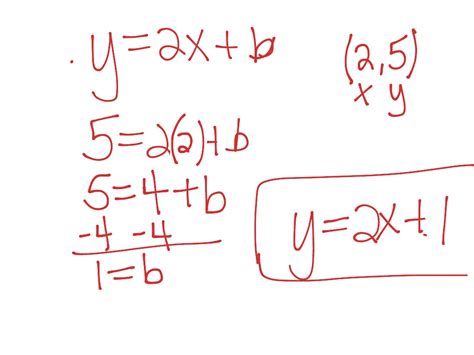 y=2x+b
(2,5)
x y
5=2(2)+b
5=4+b
-4 -4
1=b
y=2x+1